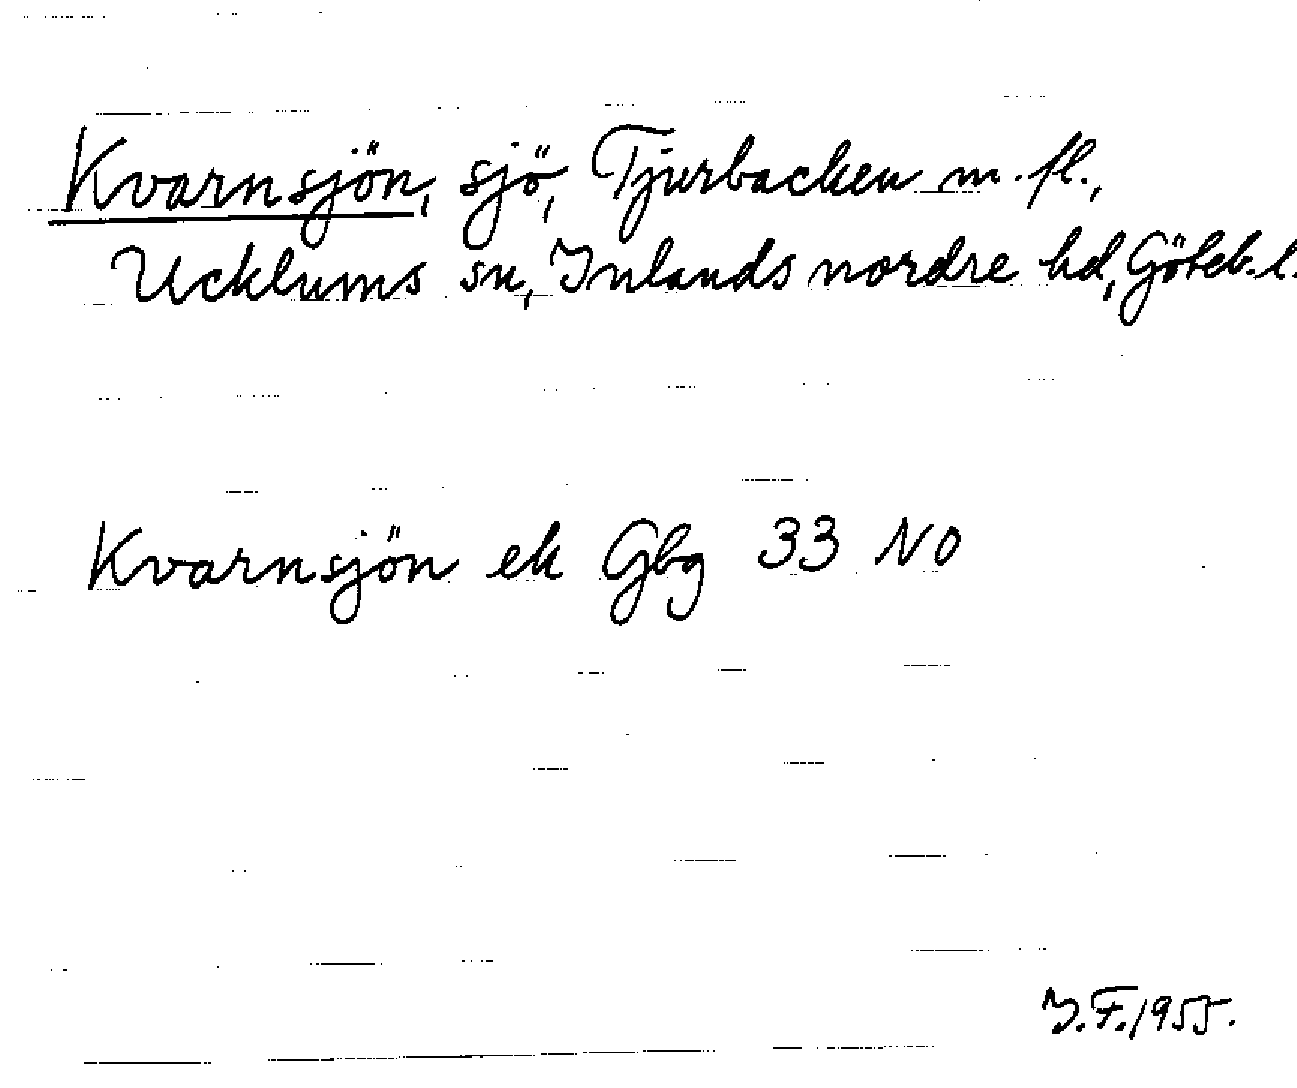 Kvarnsjön, sjö, Tjurbacken m. fl.,
Ucklums sn, Inlands nordre hd, Göteb. l.
Kvarnsjön ek Gbg 33 NO
I. F. 1955.